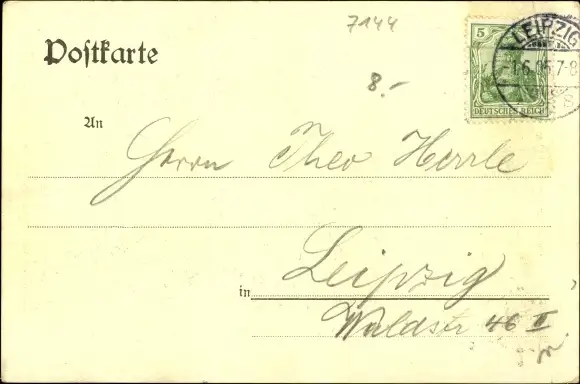 7144
Postkarte
8.-
5
DEUTSCHES REICH
LEIPZIG
1.6.05.7-8
8
An
Herrn Theo Herrle
in Leipzig
Waldstr 46 II